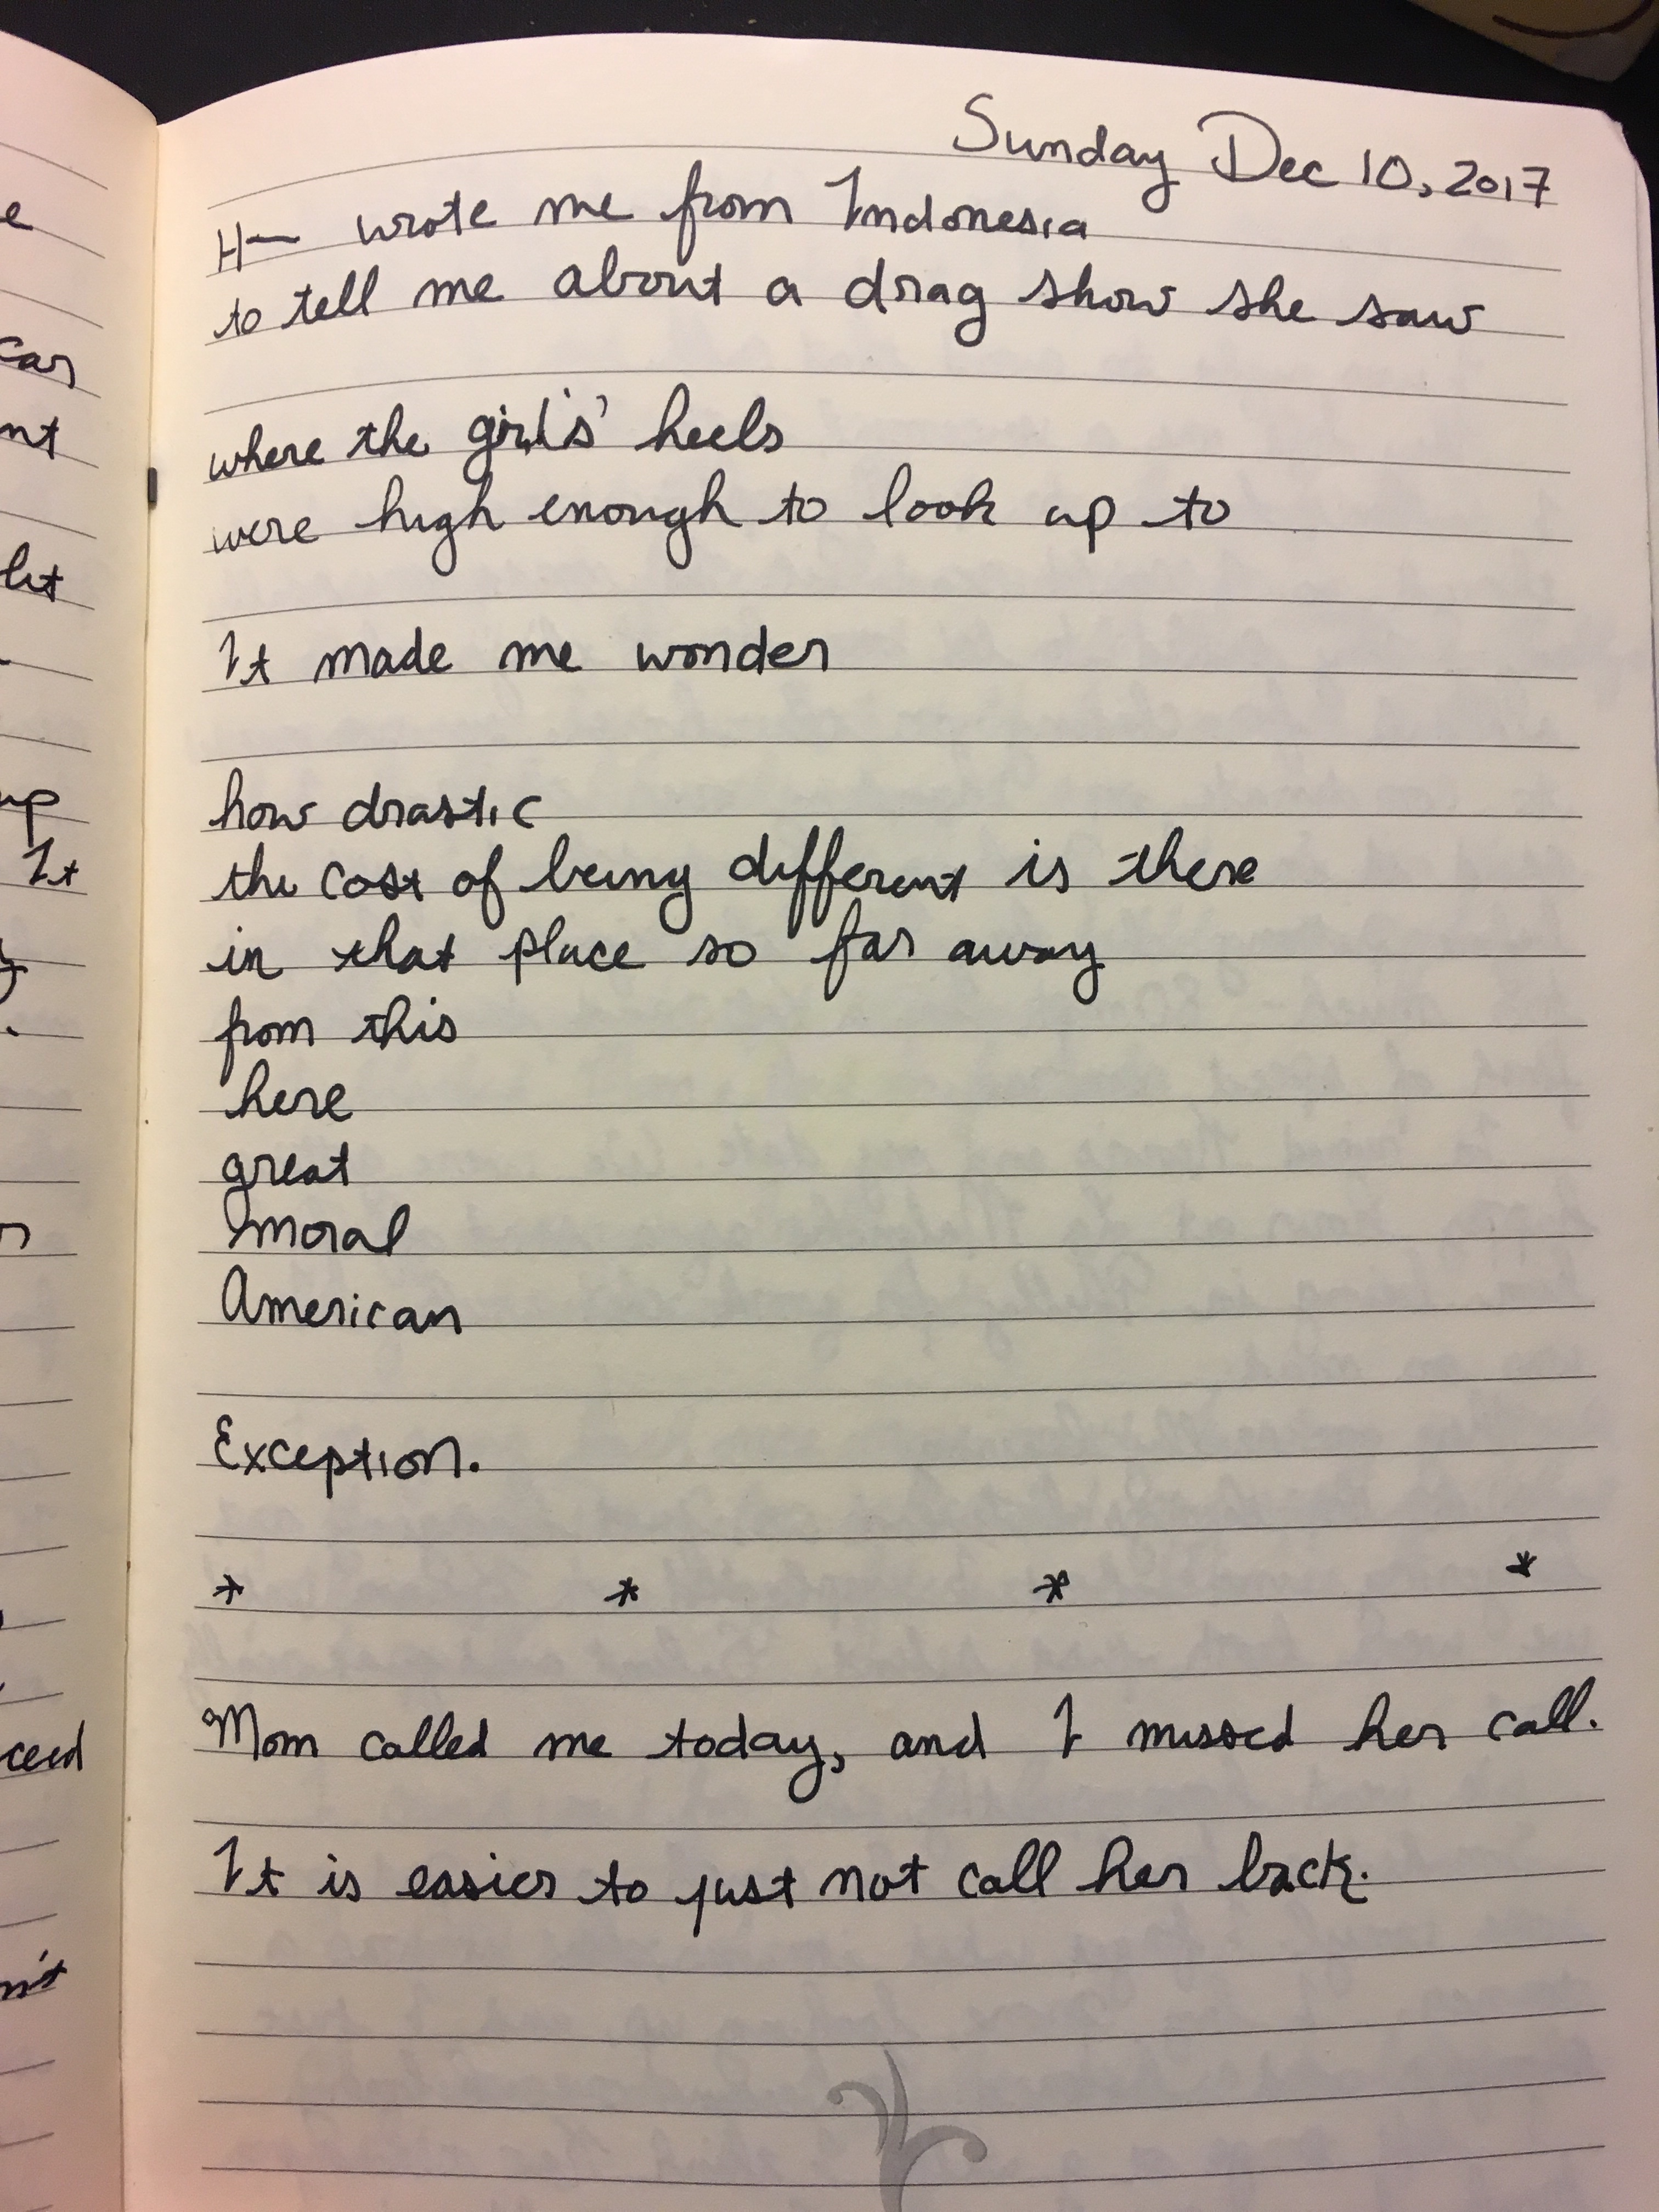 Sunday Dec 10, 2017
H— wrote me from Indonesia
to tell me about a drag show she saw
where the girls' heels
were high enough to look up to
It made me wonder
how drastic
the cost of being different is there
in that place so far away
from this
here
great
moral
American
Exception.
* * * *
Mom called me today, and I missed her call.
It is easier to just not call her back.